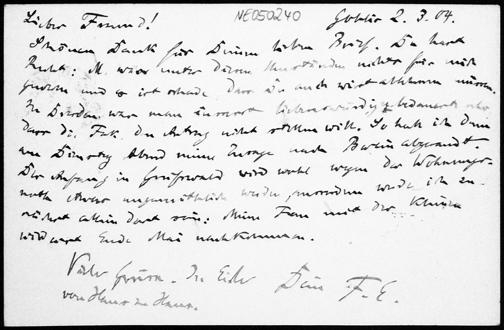 NE050240
Lieber Freund! Görlitz 2. 3. 04.
Schönen Dank für Deinen lieben Brief. Du hast
Recht: M. wäre unter diesen Umständen nichts für mich
gewesen und es ist schade, dass Du auch wirst ablehnen müssen.
In Dresden war man äusserst liebenswürdig, bedauerte sehr
dass die Fak. den Antrag nicht stellen will. So hab ich denn
am Dienstag Abend meine Zusage nach Berlin abgesandt.
Der Anfang in Greifswald wird wohl wegen der Wohnungs-
noth etwas ungemüthlich werden, ausserdem werde ich zu-
nächst allein dort sein: Meine Frau mit der Kleinen
wird erst Ende Mai nachkommen.
Viele Grüsse. In Eile Dein F. E.
von Haus zu Haus.